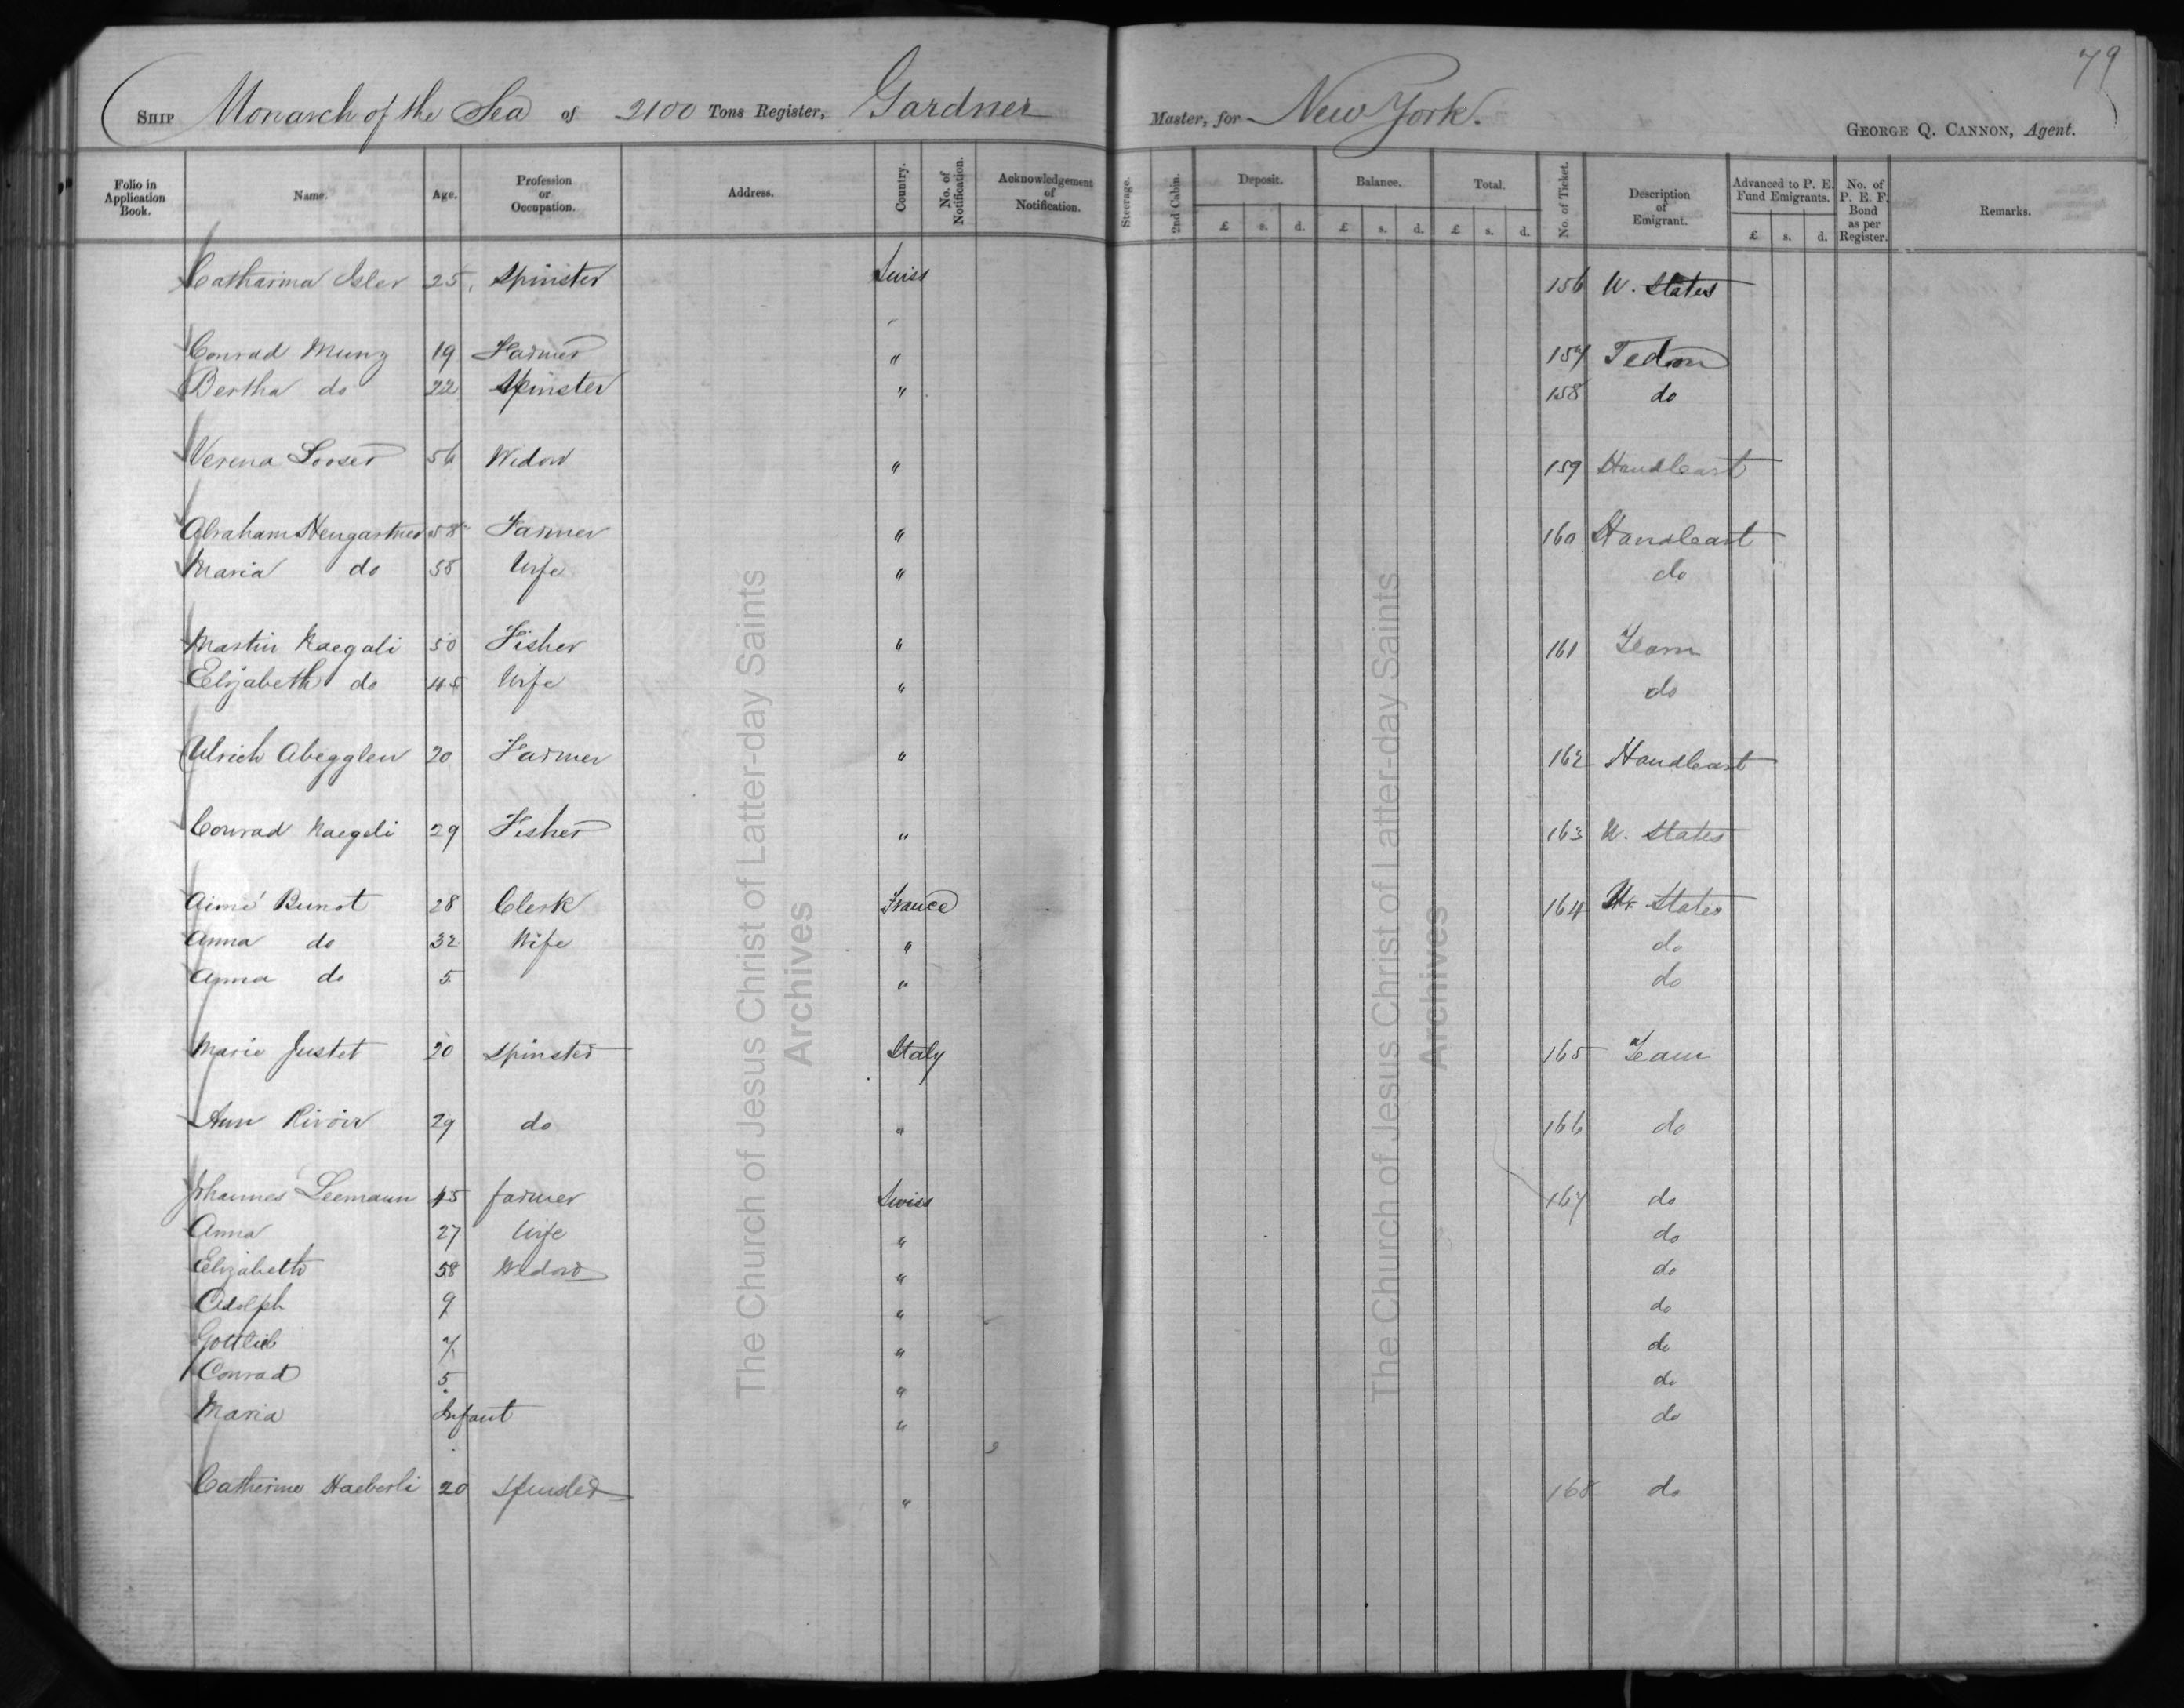 79
SHIP Monarch of the Sea of 2100 Tons Register, Gardner Master, for New York.
GEORGE Q. CANNON, Agent.
Folio in Application Book. Name. Age. Profession or Occupation. Address. Country. No. of Notification. Acknowledgement of Notification. Steerage. 2nd Cabin. Deposit. Balance. Total. No. of Ticket. Description of Emigrant. Advanced to P. E. Fund Emigrants. No. of P. E. F. Bond as per Register. Remarks.
£ s. d. £ s. d. £ s. d. £ s. d.
Catharina Isler 25 Spinster Swiss 156 U. States
Conrad Munz 19 Farmer " 157 Team
Bertha do 22 Spinster " 158 do
Verena Looser 56 Widow " 159 Handcart
Abraham Hengartner 58 Farmer " 160 Handcart
Maria do 58 Wife " do
Martin Naegali 50 Fisher " 161 Team
Elizabeth do 45 Wife " do
Ulrich Abegglen 20 Farmer " 162 Handcart
Conrad Naegeli 29 Fisher " 163 U. States
Aimé Bunot 28 Clerk France 164 U. States
Anna do 32 Wife " do
Anna do 5 " do
Marie Justet 20 Spinster Italy 165 Team
Ann Rivoir 29 do " 166 do
Johannes Leemann 45 farmer Swiss 167 do
Anna 27 Wife " do
Elizabeth 58 Widow " do
Adolph 9 " do
Gottlieb 7 " do
Conrad 5 " do
Maria Infant " do
Catherine Haeberli 20 Spinster " 168 do
The Church of Jesus Christ of Latter-day Saints
Archives
The Church of Jesus Christ of Latter-day Saints
Archives